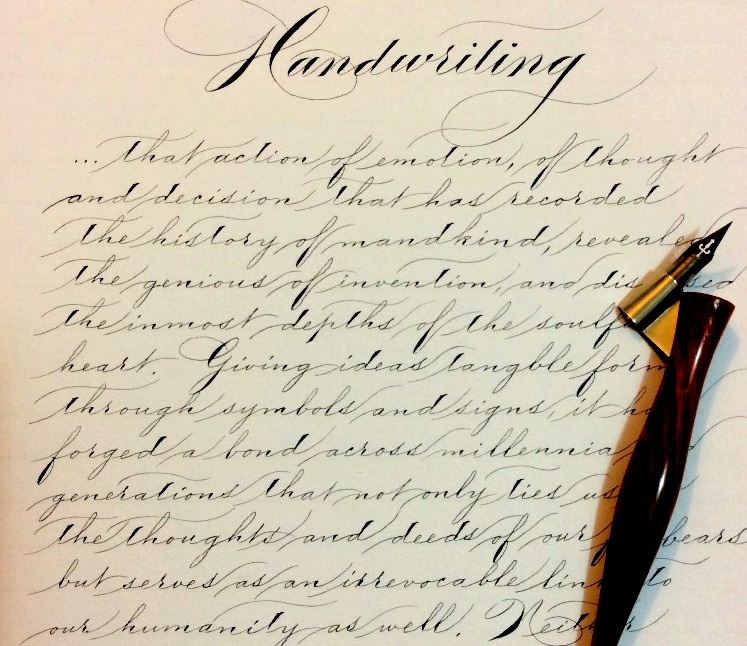 Handwriting
... that action of emotion, of thought
and decision that has recorded
the history of mandkind, revealed
the genious of invention, and dis sed
the inmost depths of the soulful
heart. Giving ideas tangble form
through symbols and signs, it ha
forged a bond across millennia
generations that not only ties us
the thoughts and deeds of our bears
but serves as an irrevocable link to
our humanity as well. Neither